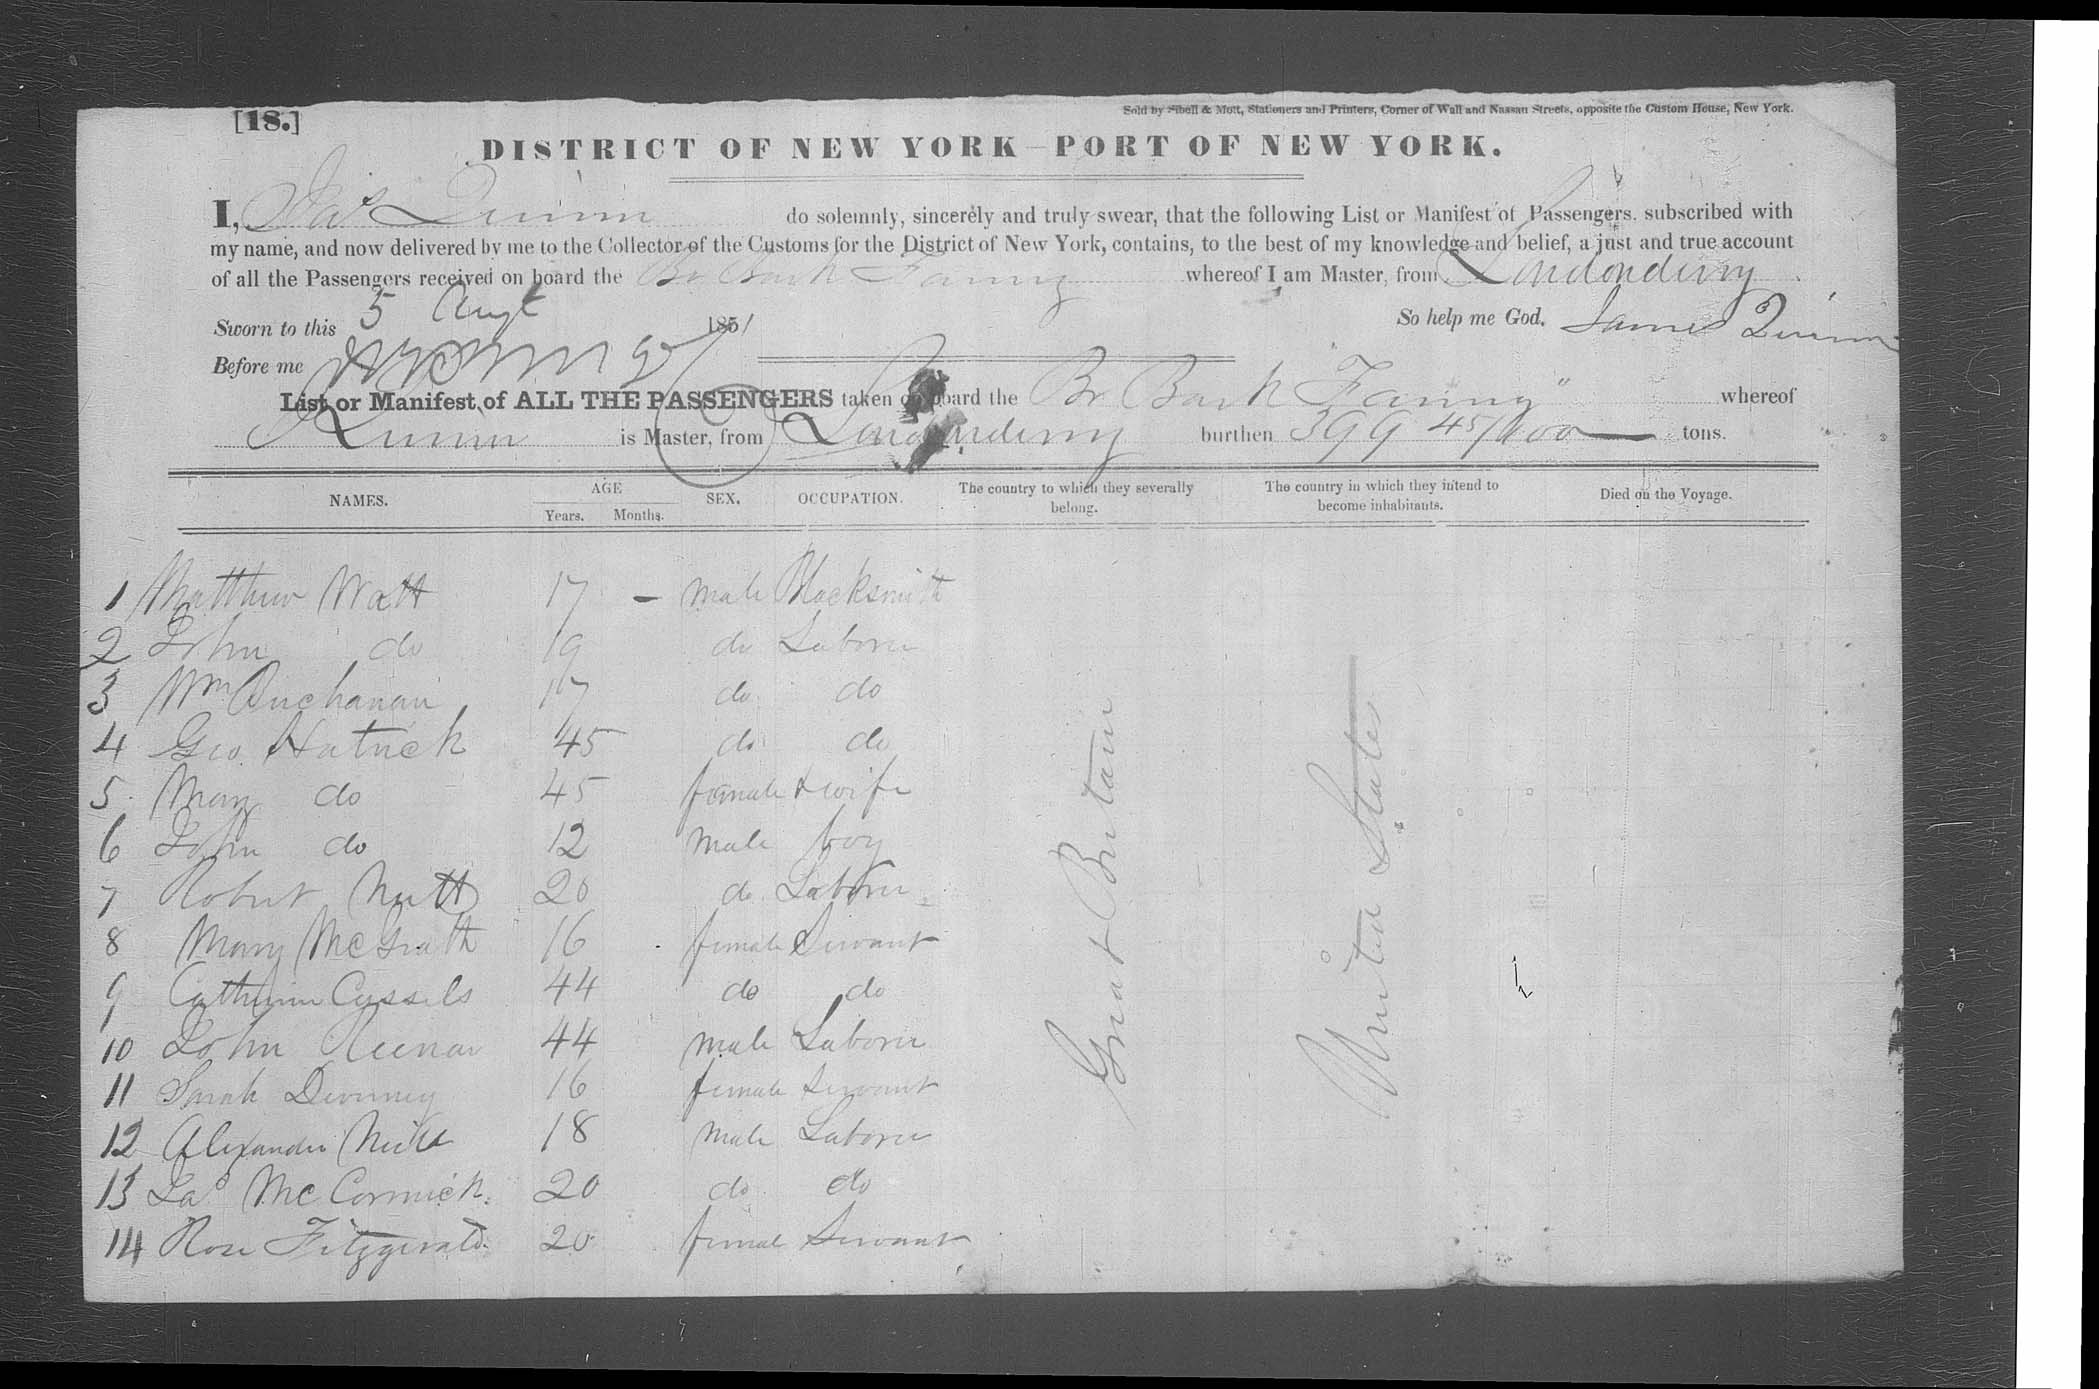 [18.]
Sold by Sibell & Mott, Stationers and Printers, Corner of Wall and Nassau Streets, opposite the Custom House, New York.
DISTRICT OF NEW YORK—PORT OF NEW YORK.
I, Jas Quinn do solemnly, sincerely and truly swear, that the following List or Manifest of Passengers, subscribed with
my name, and now delivered by me to the Collector of the Customs for the District of New York, contains, to the best of my knowledge and belief, a just and true account
of all the Passengers received on board the Br Bark Fanny whereof I am Master, from Londonderry
Sworn to this 5 Augt 1851 So help me God. James Quinn
Before me
List or Manifest of ALL THE PASSENGERS taken on board the Br Bark "Fanny" whereof
J Quinn is Master, from Londonderry burthen 399 45/100 tons.
NAMES. AGE Years. Months. SEX. OCCUPATION. The country to which they severally belong. The country in which they intend to become inhabitants. Died on the Voyage.
1 Matthew Watt 17 — male Blacksmith
2 John do 19 do Laborer
3 Wm Buchanan 17 do do
4 Geo. Hatrick 45 do do
5 Mary do 45 female wife
6 John do 12 male boy
7 Robert Nutt 20 do Laborer
8 Mary McGrath 16 female Servant
9 Catherine Cassels 44 do do
10 John 44 male Laborer
11 Sarah Devinney 16 female Servant
12 Alexander 18 male Laborer
13 Jas McCormick 20 do do
14 Rose Fitzgerald 20 female Servant
Great Britain
United States